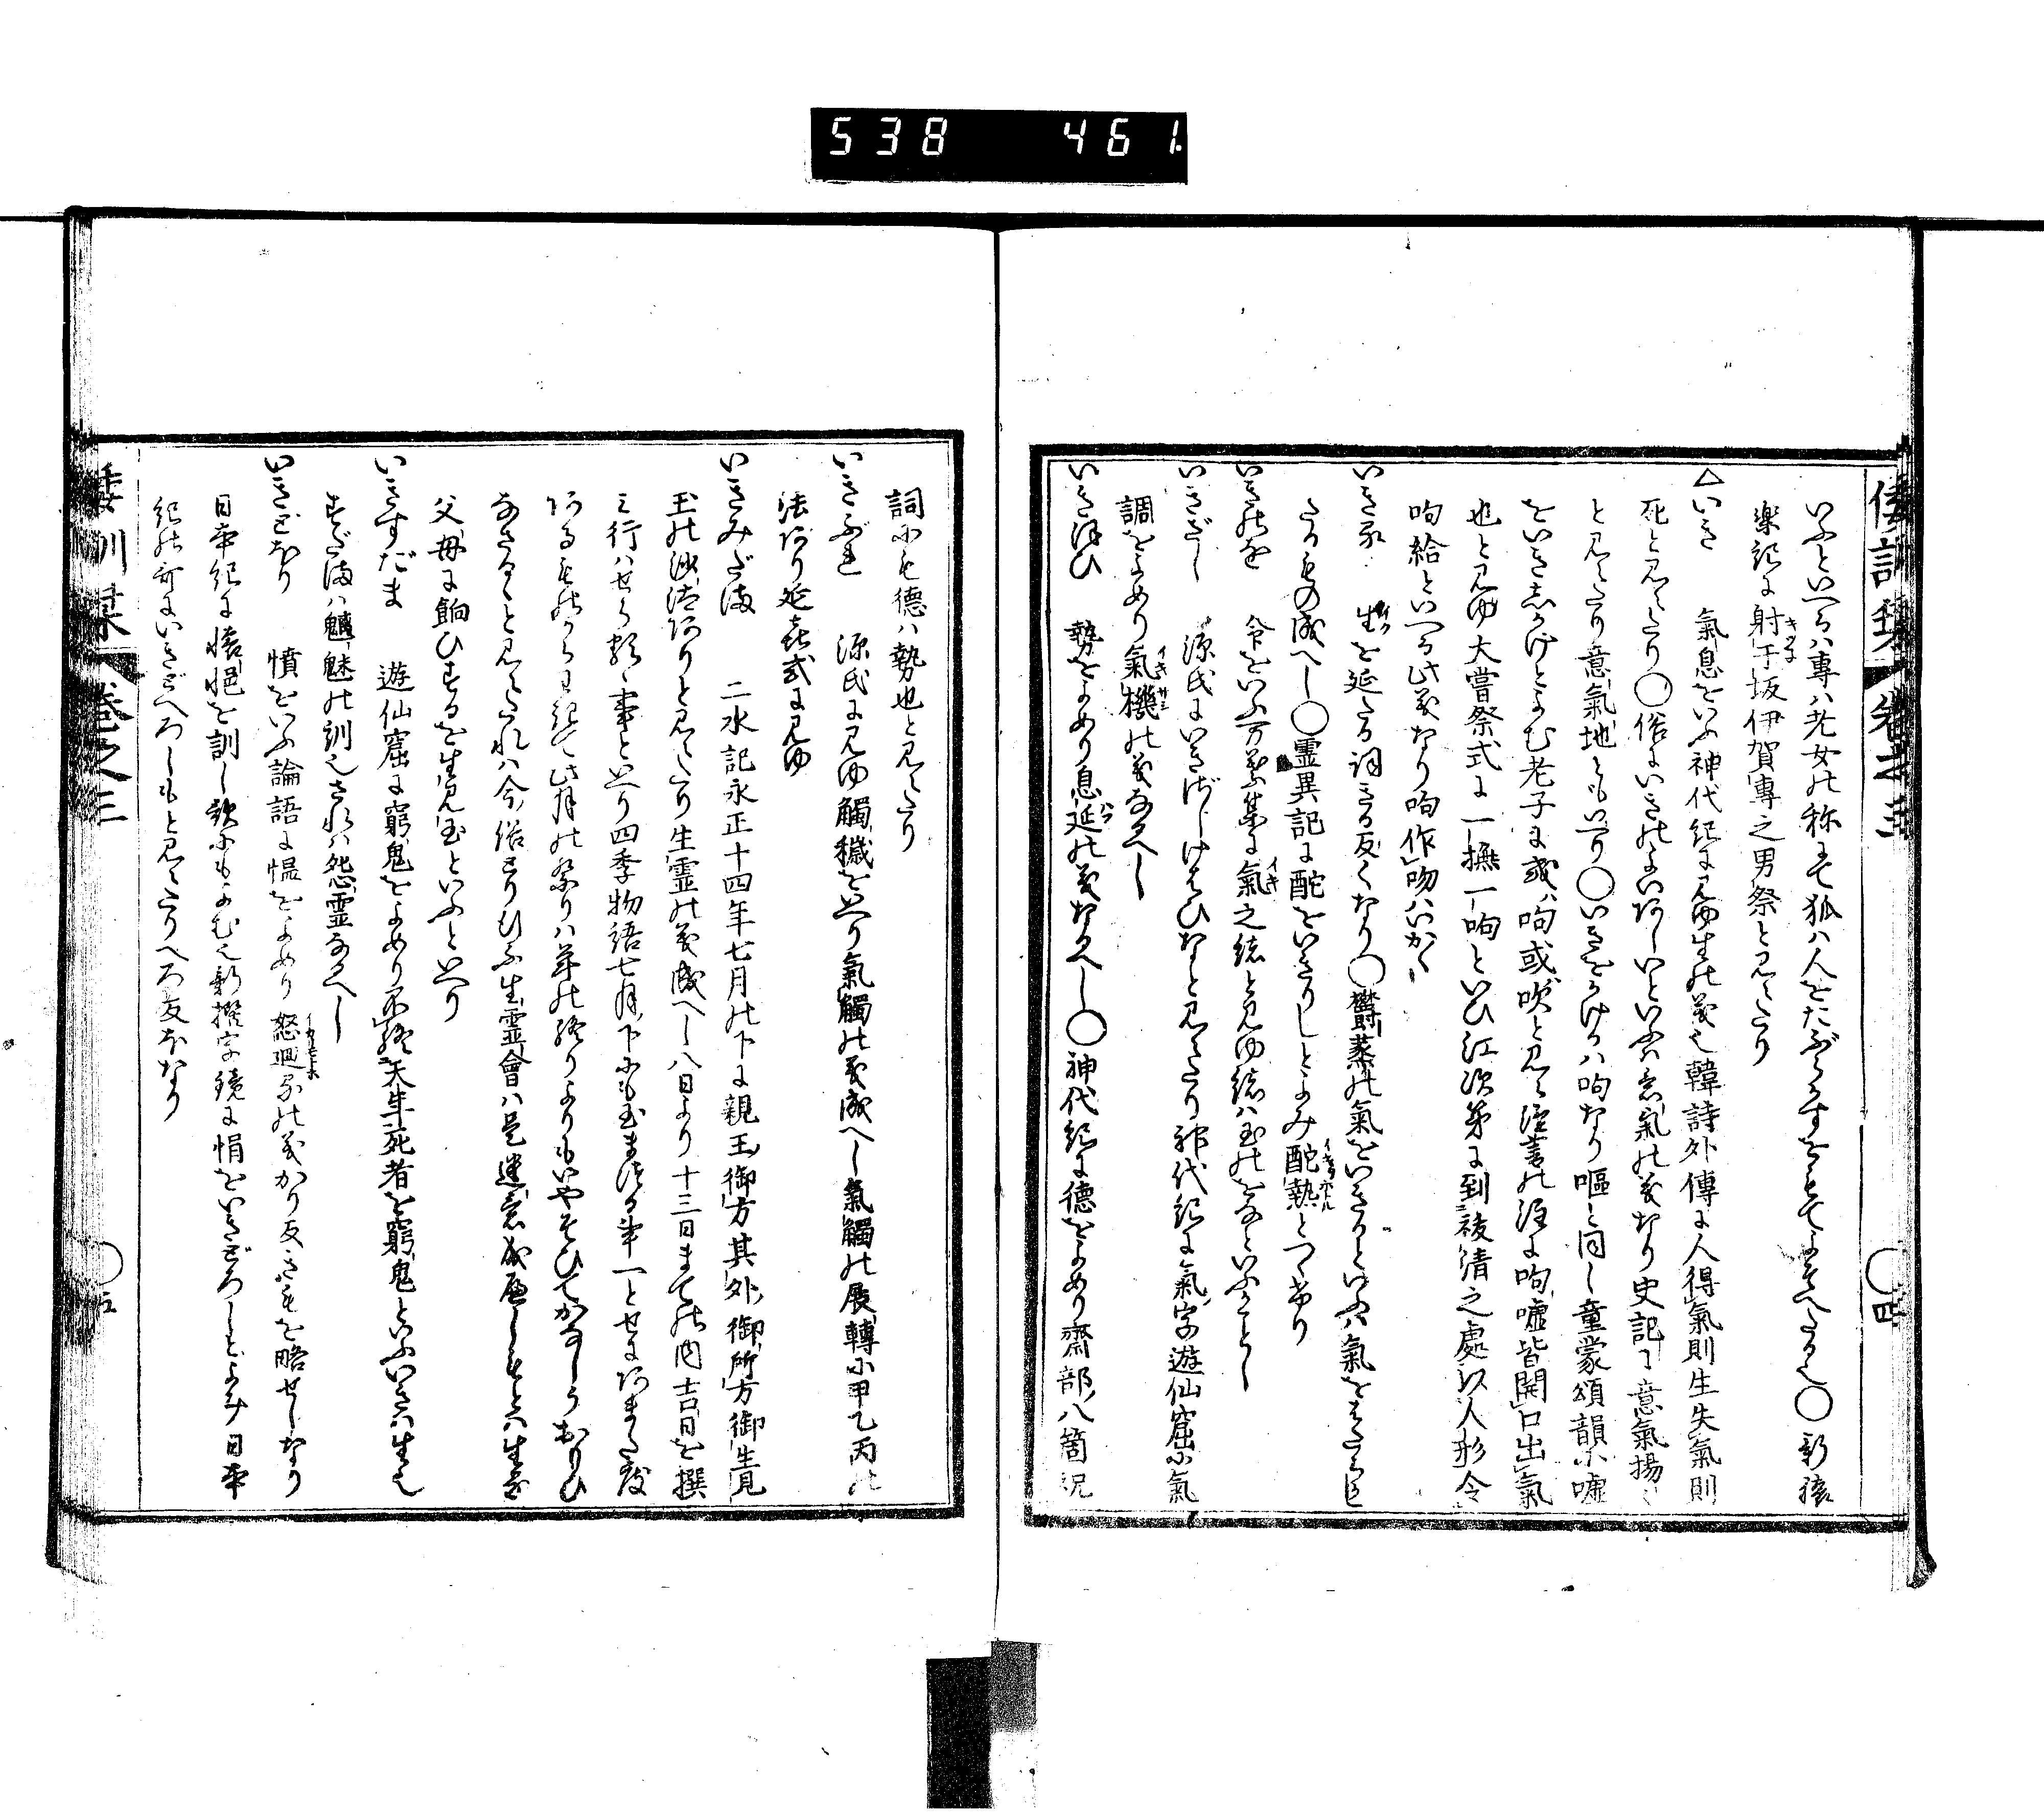 538 461
倭訓栞 巻之三 四
いふといへるハ專ハ老女の称にて狐ハ人をたぶらかすをもてよそへたる也○新猿
楽記に射干坂伊賀專之男祭と見えたり
△いき 氣息をいふ神代紀に見ゆ生の義也韓詩外傳に人得氣則生失氣則
死と見えたり○俗にいきのよいあしいといふハ意氣の義なり史記に意氣揚々
と見えたり意氣地ともいへり○いきをかけるハ呴なり嘔と同し童蒙頌韻に嘘
をいきふかげとよむ老子に或ハ呴或吹と見え注善の注に呴嘘皆開口出氣
也と見ゆ大嘗祭式に一撫一呴といひ江次第に到祓清之處以人形令
呴給といへる此義なり呴作吻ハいかゝ
いきる 生を延たる詞きる反くなり○欝蒸の氣をいきるといふハ氣をはたらし
たるもの成へし○霊異記に酡をいきりしとよみ酡熱とつゝけり
いきのを 命をいふ万葉集に氣之緒と見ゆ緒ハ玉のをなといふかことし
いきざし 源氏にいきざしけはひなと見えたり神代紀に氣字遊仙窟に氣
調をよめり氣機の義なるへし
いきほひ 勢をよめり息延の義なるへし○神代紀に德をよめり齋部八箇祝
詞にも德ハ勢也と見えたり
いきぶれ 源氏に見ゆ觸穢をいへり氣觸の義成へし氣觸の展轉に甲乙丙の
法あり延喜式に見ゆ
いきみだま 二水記永正十四年七月の下に親王御方其外御所方御生見
玉の沙汰ありと見えたり生霊の義成へし八日より十三日まての内吉日を撰
ミ行ハせらるゝ事といへり四季物語七月下にも玉まつる事一とせにあまた度
あるものからわきて此月の祭りハ年の終りよりもいやそひてかなしうおもひ
なさるゝと見えたれハ今俗とりむふ生霊會ハ是迷意成へしもとハ生る
父母に餉ひするを生見玉といふといへり
いきすだま 遊仙窟に窮鬼をよめり不終天年死者を窮鬼といふいきハ生也
すだまハ魑魅の訓也されハ怨霊なるへし
いきどほり 憤をいふ論語に愠をよめり怒廻るの義かり反きもを略せしなり
日本紀に悵悒を訓し歌にもよむ也新撰字鏡に悁をいきどろしとよみ日本
紀の歌にいきどへろしもと見えたりへろ反ほなり
倭訓栞 巻之三 五